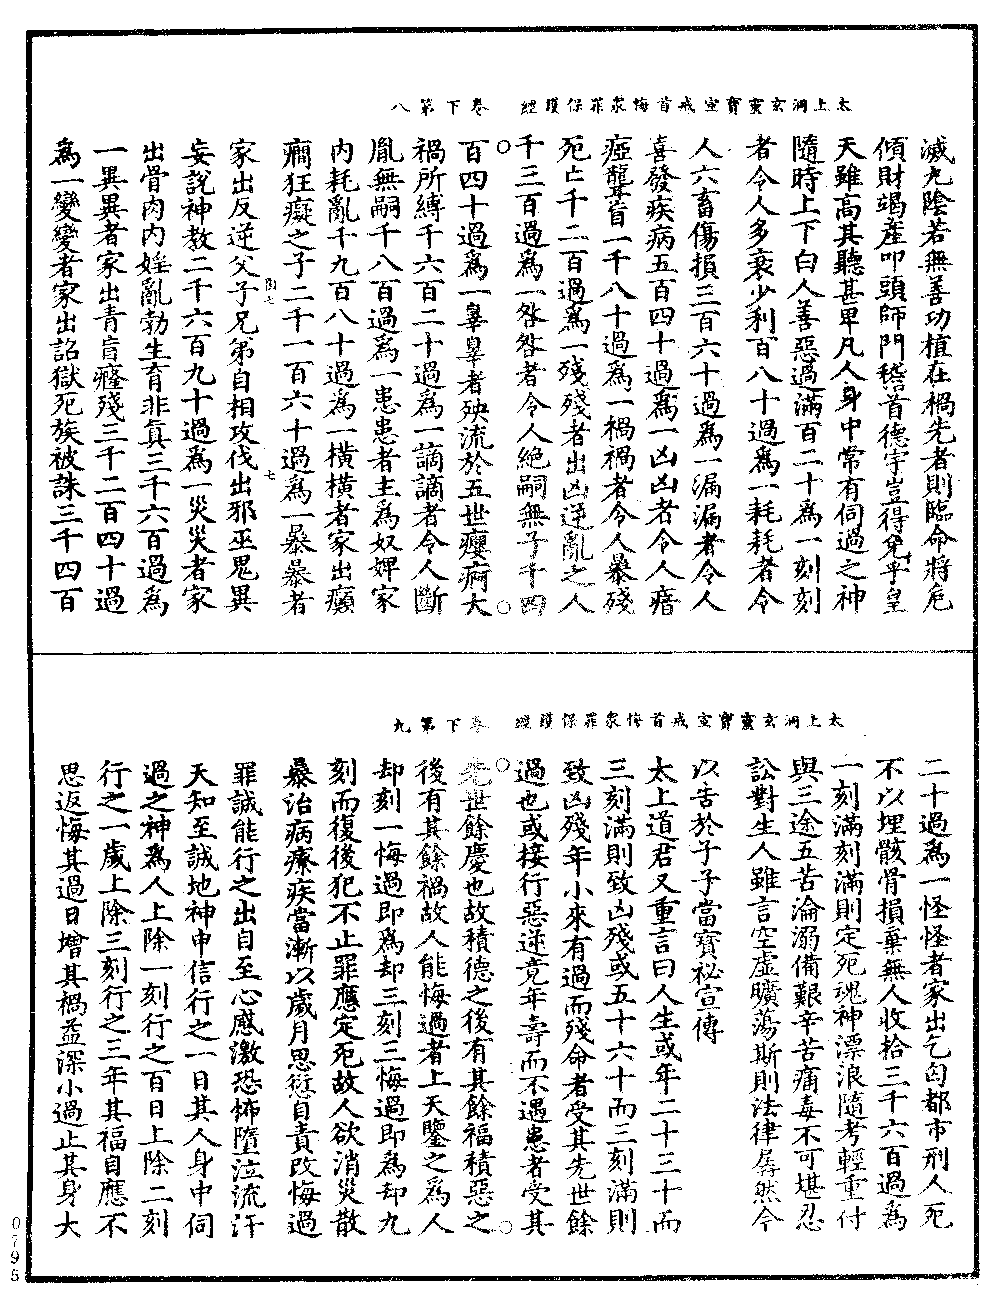 太上洞玄靈寶宣戒首悔眾罪保護經　卷下第八
滅九陰若無善功植在禍先者則臨命將危
傾財竭產叩頭師門稽首德宇豈得免乎皇
天雖高其聽甚卑凡人身中常有伺過之神
隨時上下白人善惡過滿百二十為一刻刻
者令人多衰少利百八十過為一耗耗者令
人六畜傷損三百六十過為一漏漏者令人
喜發疾病五百四十過為一凶凶者令人瘖
瘂聾盲一千八十過為一禍禍者令人暴殘
死亡千二百過為一殘殘者出凶逆亂之人
千三百過為一咎咎者令人絕嗣無子千四
百四十過為一辜辜者殃流於五世癭痾大
禍所縛千六百二十過為一謫謫者令人斷
胤無嗣千八百過為一患患者主為奴婢家
內耗亂千九百八十過為一橫橫者家出癲
癇狂癡之子二千一百六十過為一暴暴者
家出反逆父子兄弟自相攻伐出邪巫鬼異
妄說神教二千六百九十過為一災災者家
出骨肉內婬亂勃生育非真三千六百過為
一異異者家出青盲癃殘三千二百四十過
為一變變者家出詔獄死族被誅三千四百
太上洞玄靈寶宣戒首悔眾罪保護經　卷下第九
二十過為一怪怪者家出乞匃都市刑人死
不以埋骸骨損棄無人收拾三千六百過為
一刻滿刻滿則定死魂神漂浪隨考輕重付
與三途五苦淪溺備艱辛苦痛毒不可堪忍
訟對生人雖言空虛曠蕩斯則法律孱然今
以告於子子當寶祕宣傳
太上道君又重言曰人生或年二十三十而
三刻滿則致凶殘或五十六十而三刻滿則
致凶殘年小來有過而殘命者受其先世餘
過也或接行惡逆竟年壽而不遇患者受其
先世餘慶也故積德之後有其餘福積惡之
後有其餘禍故人能悔過者上天鑒之為人
却刻一悔過即為却三刻三悔過即為却九
刻而復後犯不止罪應定死故人欲消災散
暴治病療疾當漸以歲月思愆自責改悔過
罪誠能行之出自至心感激恐怖墮泣流汗
天知至誠地神申信行之一日其人身中伺
過之神為人上除一刻行之百日上除二刻
行之一歲上除三刻行之三年其福自應不
思返悔其過日增其禍益深小過止其身大
0795